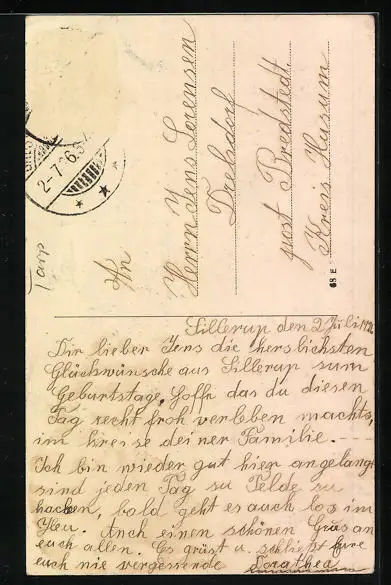 Tarp
2-7
An
Herrn Jens Lorensen
Drelsdorf
post Bredstedt
Kreis Husum
68 E
Sillerup den 2 Juli
Dir lieber Jens die herslichsten
Glückwünsche aus Sillerup sum
Geburtstage. Hoffe das du diesen
Tag recht froh verleben machts,
im kreise deiner Familie. - - -
Ich bin wieder gut hier angelangt
sind jeden Tag su Felde su
hacken, bald geht es auch los im
Heu. Auch einen schönen Grus an
euch allen. Es grüst u. schliest Eure
euch nie vergessende Dorathea